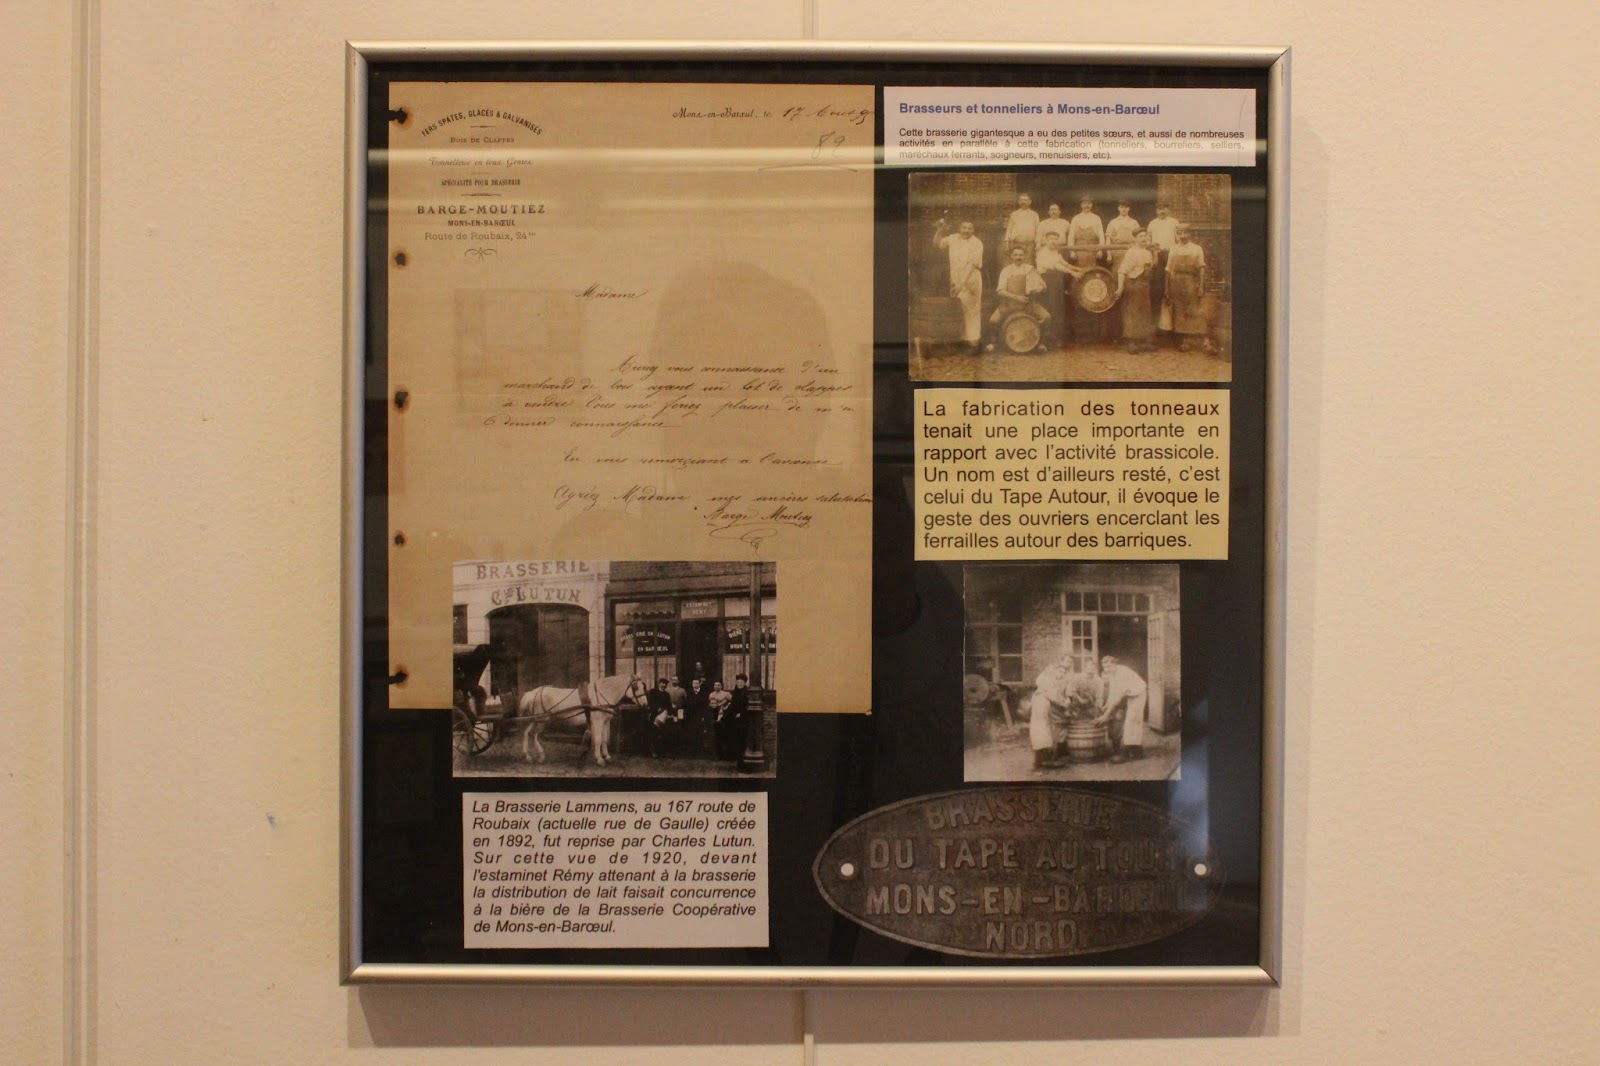 FERS SPATES, GLACÉS & GALVANISÉS
BOIS DE CLAPPES
Tonnellerie en tous Genres
SPÉCIALITÉ POUR BRASSERIE
BARGE-MOUTIEZ
MONS-EN-BARŒUL
Route de Roubaix, 24 bis
Mons-en-Barœul, le 17
89
Madame
vous connaissance d'un
marchand de bois ayant un lot de clappes
à vendre Vous me feriez plaisir de m'en
donner connaissance
En vous remerciant à l'avance
Agréez Madame mes sincères salutations
Barge Moutiez
Brasseurs et tonneliers à Mons-en-Barœul
Cette brasserie gigantesque a eu des petites sœurs, et aussi de nombreuses
activités en parallèle à cette fabrication (tonneliers, bourreliers, selliers,
maréchaux ferrants, soigneurs, menuisiers, etc).
La fabrication des tonneaux
tenait une place importante en
rapport avec l'activité brassicole.
Un nom est d'ailleurs resté, c'est
celui du Tape Autour, il évoque le
geste des ouvriers encerclant les
ferrailles autour des barriques.
BRASSERIE
Ch. LUTUN
ESTAMINET
REMY
BRASSERIE CH. LUTUN
MONS-EN-BARŒUL
BIÈRE
La Brasserie Lammens, au 167 route de
Roubaix (actuelle rue de Gaulle) créée
en 1892, fut reprise par Charles Lutun.
Sur cette vue de 1920, devant
l'estaminet Rémy attenant à la brasserie
la distribution de lait faisait concurrence
à la bière de la Brasserie Coopérative
de Mons-en-Barœul.
BRASSERIE
DU TAPE AUTOUR
MONS-EN-BARŒUL
NORD